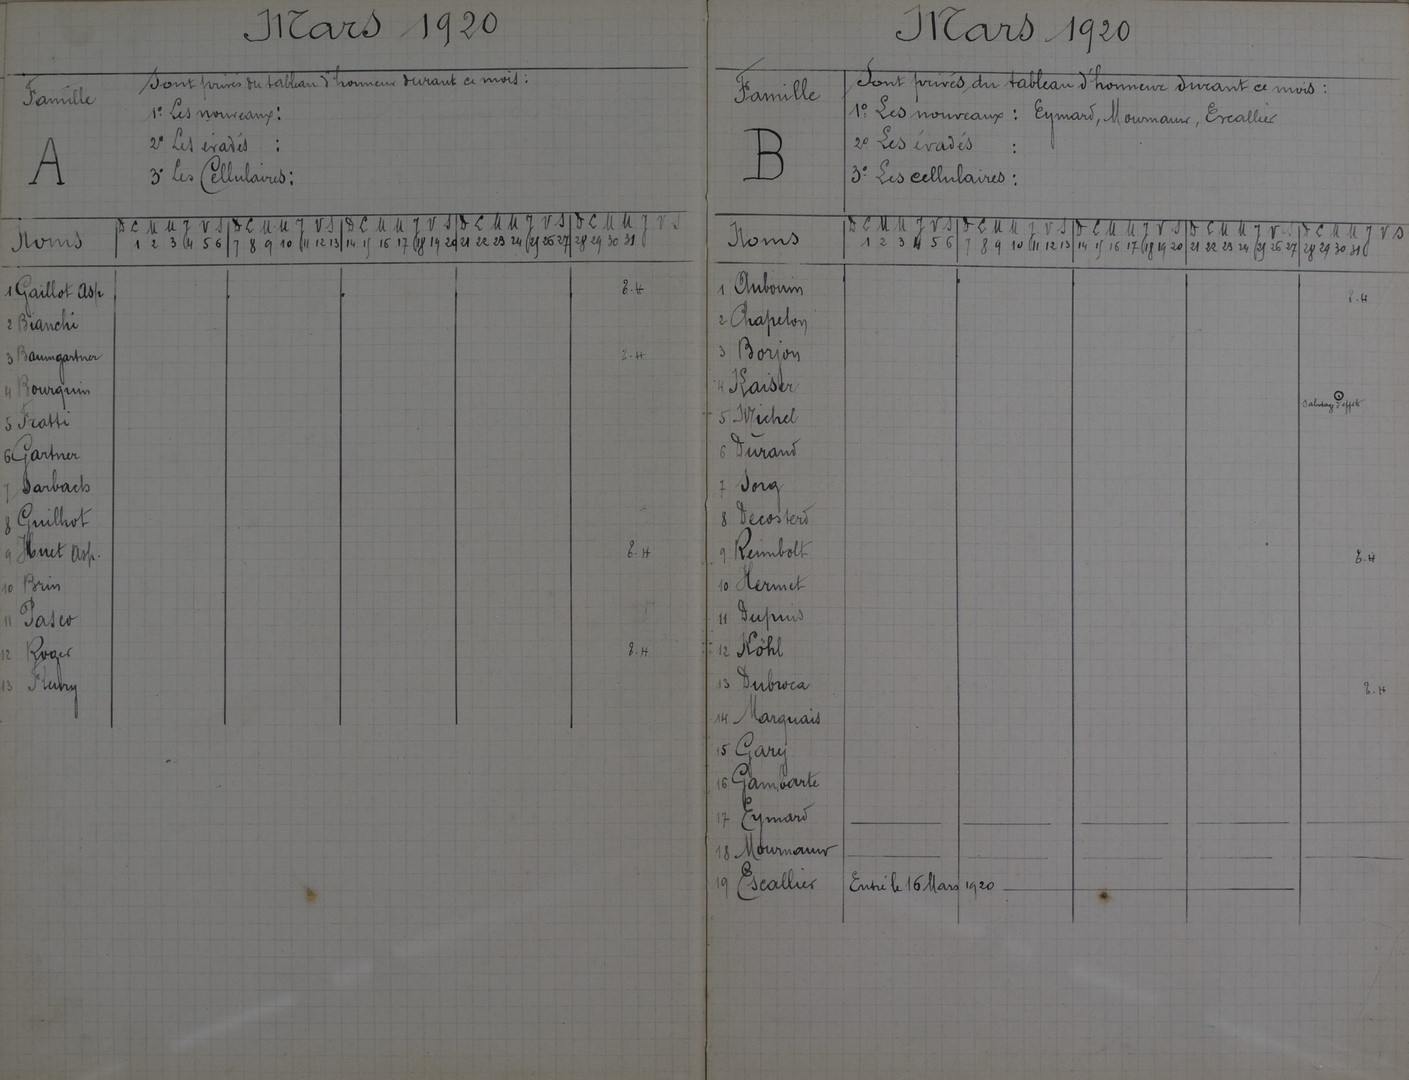 Mars 1920
Famille A
Sont privés du tableau d'honneur durant ce mois :
1° Les nouveaux :
2° Les évadés :
3° Les Cellulaires :
Noms
D L M M J V S D L M M J V S D L M M J V S D L M M J V S D L M M J V S
1 2 3 4 5 6 7 8 9 10 11 12 13 14 15 16 17 18 19 20 21 22 23 24 25 26 27 28 29 30 31
1 Gaillot Asp. T.H
2 Bianchi
3 Baumgartner T.H
4 Bourquin
5 Fratti
6 Gartner
7 Sarbach
8 Guilhot
9 Huet Asp. T.H
10 Brin
11 Pasco
12 Roger T.H
13 Fleury
Mars 1920
Famille B
Sont privés du tableau d'honneur durant ce mois :
1° Les nouveaux : Eymard, Mournaux, Escallier
2° Les évadés :
3° Les cellulaires :
Noms
D L M M J V S D L M M J V S D L M M J V S D L M M J V S D L M M J V S
1 2 3 4 5 6 7 8 9 10 11 12 13 14 15 16 17 18 19 20 21 22 23 24 25 26 27 28 29 30 31
1 Aubouin T.H
2 Chapelon
3 Borjon
4 Kaiser
5 Michel
6 Durand
7 Jorg
8 Decosterd
9 Reimbolt T.H
10 Hermet
11 Dupuis
12 Köhl
13 Dubroca T.H
14 Marquais
15 Gary
16 Gambarte
17 Eymard
18 Mournaux
19 Escallier Entré le 16 Mars 1920